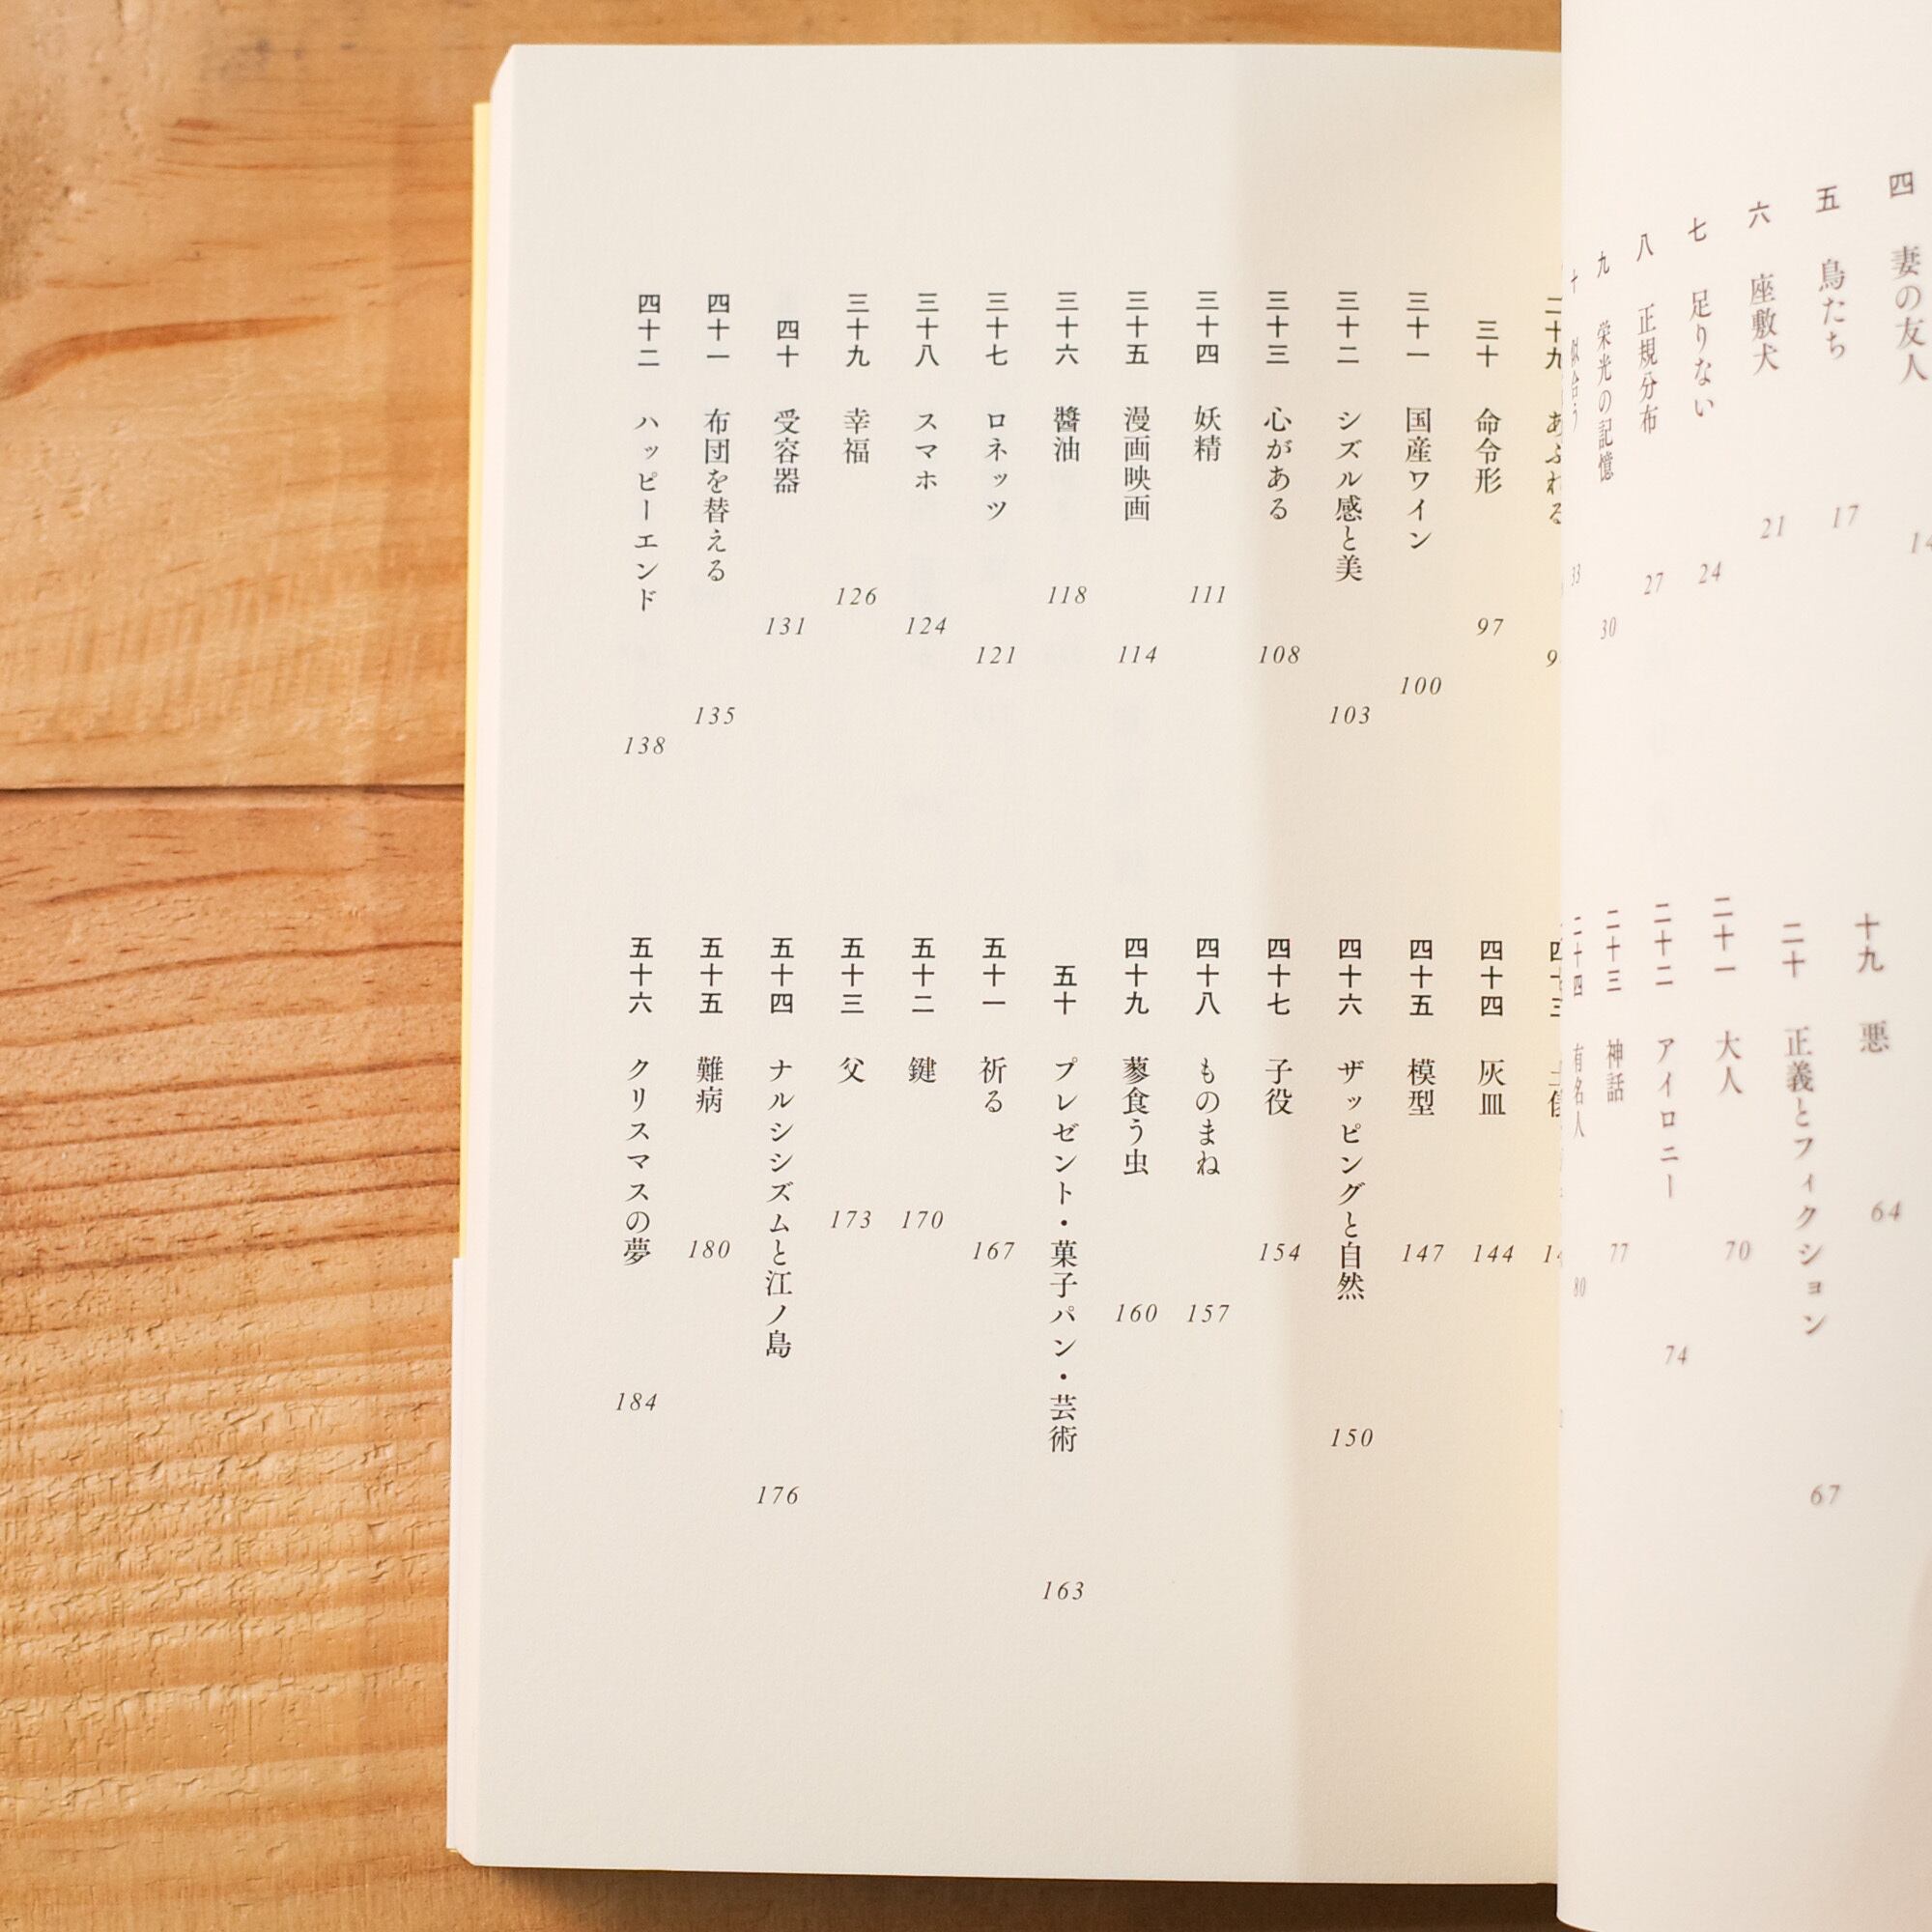 四 妻の友人
五 鳥たち 17
六 座敷犬 21
七 足りない 24
八 正規分布 27
九 栄光の記憶 30
十 似合う 33
十九 悪 64
二十 正義とフィクション 67
二十一 大人 70
二十二 アイロニー 74
二十三 神話 77
二十四 有名人 80
二十九 あふれる
三十 命令形 97
三十一 国産ワイン 100
三十二 シズル感と美 103
三十三 心がある 108
三十四 妖精 111
三十五 漫画映画 114
三十六 醬油 118
三十七 ロネッツ 121
三十八 スマホ 124
三十九 幸福 126
四十 受容器 131
四十一 布団を替える 135
四十二 ハッピーエンド 138
四十三
四十四 灰皿 144
四十五 模型 147
四十六 ザッピングと自然 150
四十七 子役 154
四十八 ものまね 157
四十九 蓼食う虫 160
五十 プレゼント・菓子パン・芸術 163
五十一 祈る 167
五十二 鍵 170
五十三 父 173
五十四 ナルシシズムと江ノ島 176
五十五 難病 180
五十六 クリスマスの夢 184